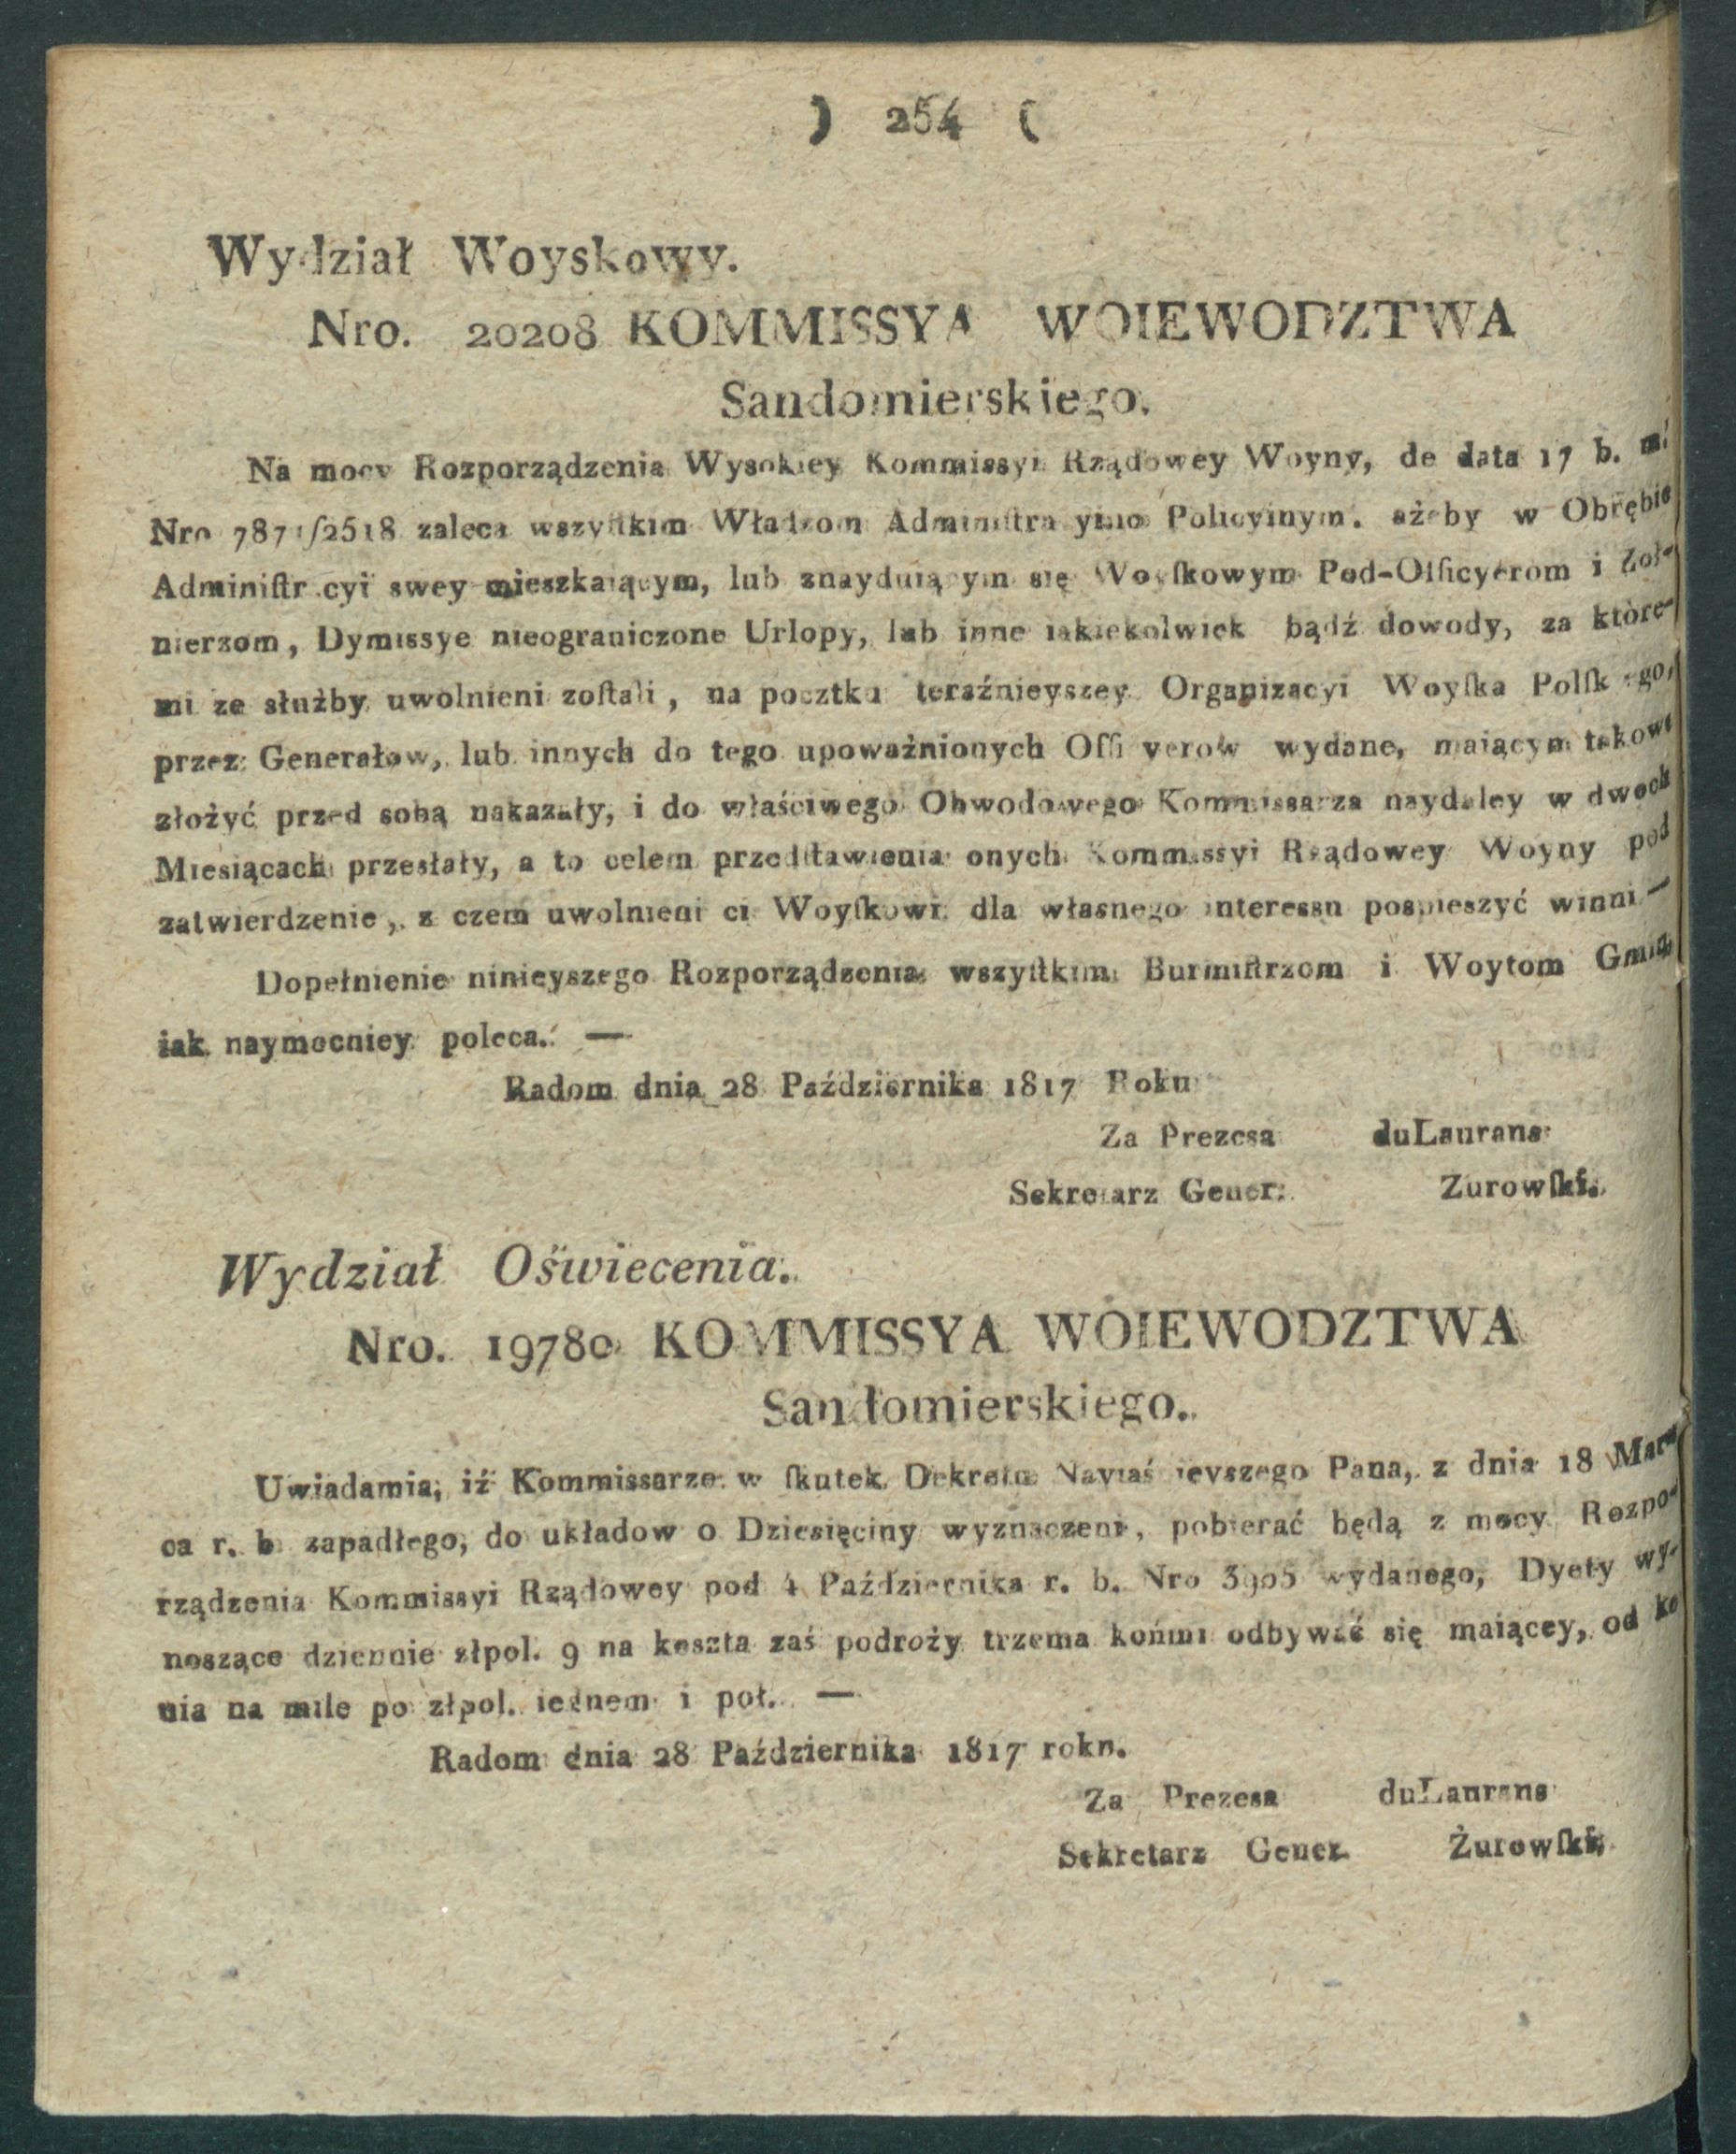 ) 254 (
Wydział Woyskowy.
Nro. 20208 KOMMISSYA WOIEWODZTWA
Sandomierskiego.
Na mocy Rozporządzenia Wysokiey Kommissyi Rządowey Woyny, de data 17 b. m.
Nro 7871/2518 zaleca wszyſtkim Władzom Adminiſtracyino Policyinym. ażeby w Obrębie
Adminiſtracyi swey mieszkaiącym, lub znayduiącym się Woyſkowym Pod-Officyerom i Zoł-
nierzom, Dymissye nieograniczone Urlopy, lub inne iakiekolwiek bądź dowody, za które-
mi ze służby uwolnieni zoſtali, na początku teraźnieyszey Organizacyi Woyſka Polſkiego,
przez Generałow, lub innych do tego upoważnionych Officyerów wydane, maiącym takowe
złożyć przed sobą nakazały, i do właściwego Obwodowego Kommissarza naydaley w dwoch
Miesiącach przesłały, a to celem przedſtawienia onych Kommissyi Rządowey Woyny pod
zatwierdzenie, z czem uwolnieni ci Woyſkowi dla własnego interessu pospieszyć winni —
Dopełnienie ninieyszego Rozporządzenia wszyſtkim Burmiſtrzom i Woytom Gmin
iak naymocniey poleca. —
Radom dnia 28 Października 1817 Roku
Za Prezesa duLaurans
Sekretarz Gener. Zurowſki.
Wydział Oświecenia.
Nro. 19780 KOMMISSYA WOIEWODZTWA
Sandomierskiego.
Uwiadamia, iż Kommissarze w ſkutek Dekretu Nayiaśnieyszego Pana, z dnia 18 Mar-
ca r. b. zapadłego, do układow o Dziesięciny wyznaczeni, pobierać będą z mocy Rozpo-
rządzenia Kommissyi Rządowey pod 4 Października r. b. Nro 3905 wydanego, Dyety wy-
noszące dziennie złpol. 9 na koszta zaś podroży trzema końmi odbywać się maiącey, od ko
nia na mile po złpol. iednem i poł. —
Radom dnia 28 Października 1817 roku.
Za Prezesa duLaurans
Sekretarz Gener. Żurowſki.